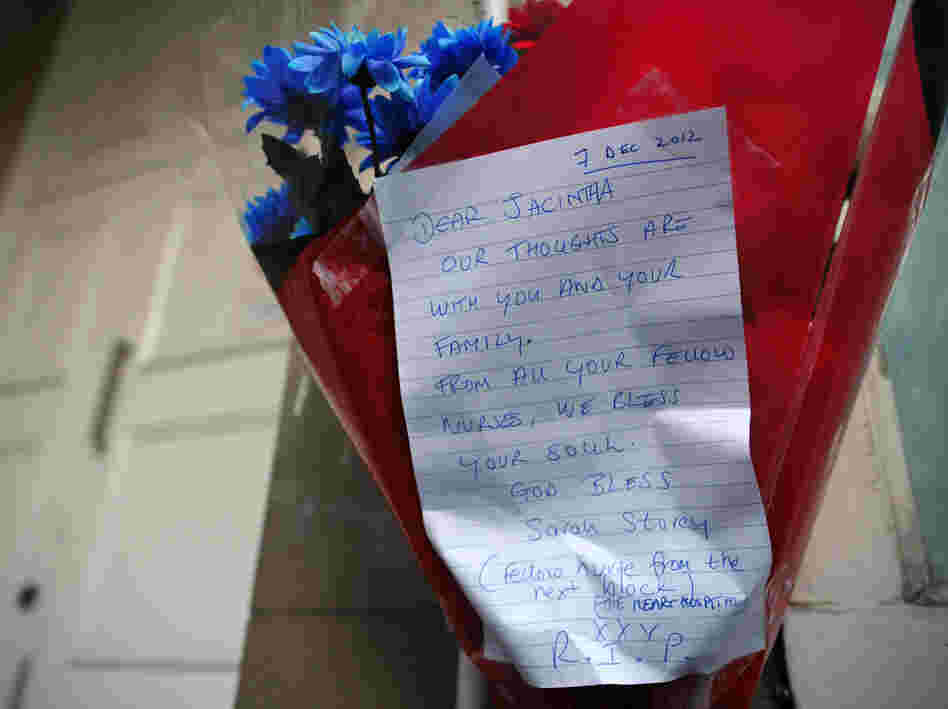 7 DEC 2012
DEAR JACINTHA
OUR THOUGHTS ARE
WITH YOU AND YOUR
FAMILY.
FROM ALL YOUR FELLOW
NURSES, WE BLESS
YOUR SOUL.
GOD BLESS
Sarah Storey
(Fellow nurse from the
next block)
THE HEART HOSPITAL
XXY
R.I.P.